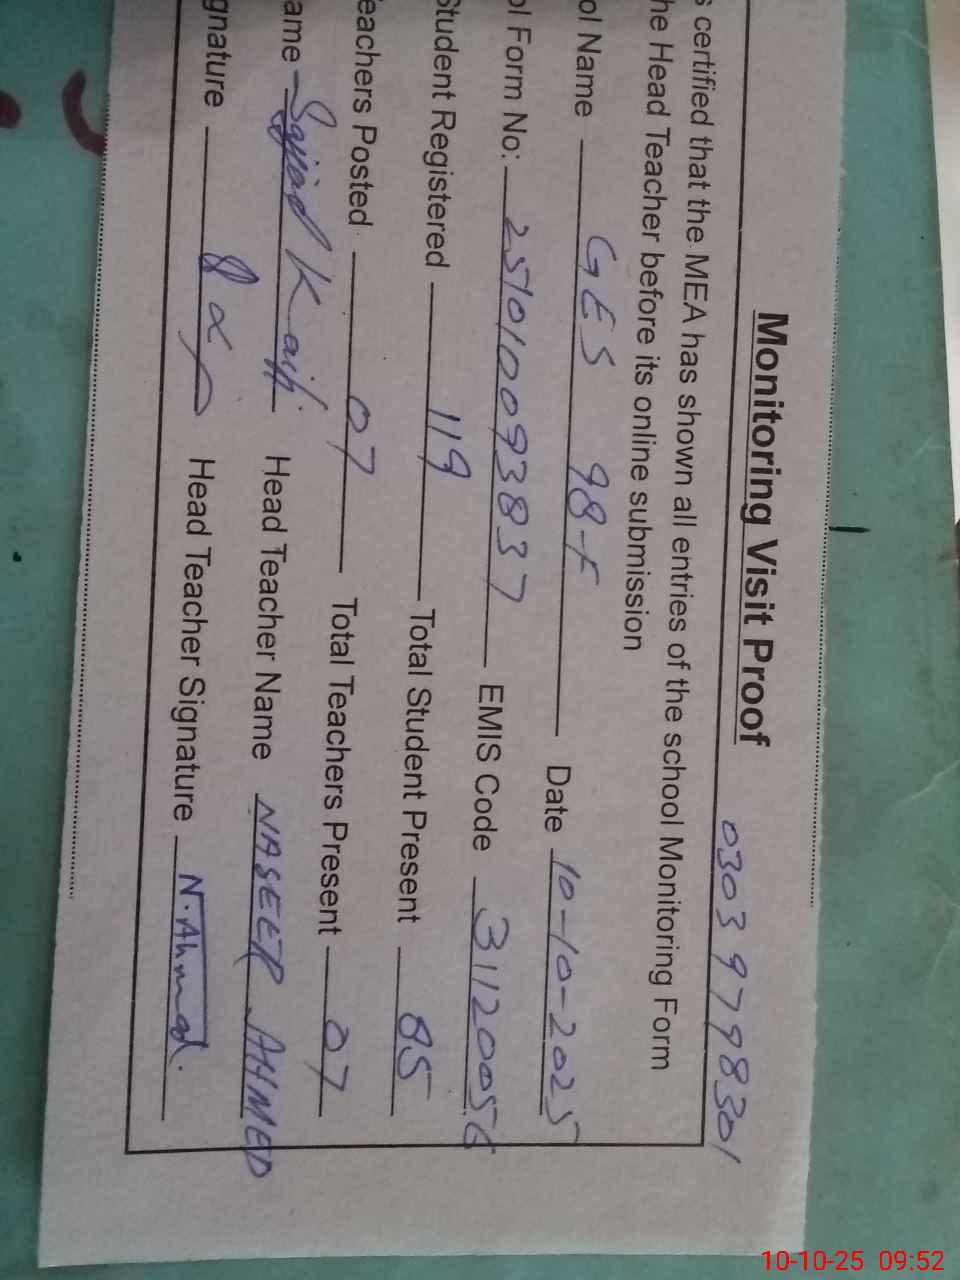 Monitoring Visit Proof 0303 9798301
s certified that the MEA has shown all entries of the school Monitoring Form
he Head Teacher before its online submission
ol Name GES 98-F Date 10-10-2025
ol Form No: 25101009383 7 EMIS Code 31120056
Student Registered 119 Total Student Present 85
eachers Posted 07 Total Teachers Present 07
ame Sajjad Head Teacher Name NASEER AHMED
gnature Head Teacher Signature N.Ahmad.
10-10-25 09:52